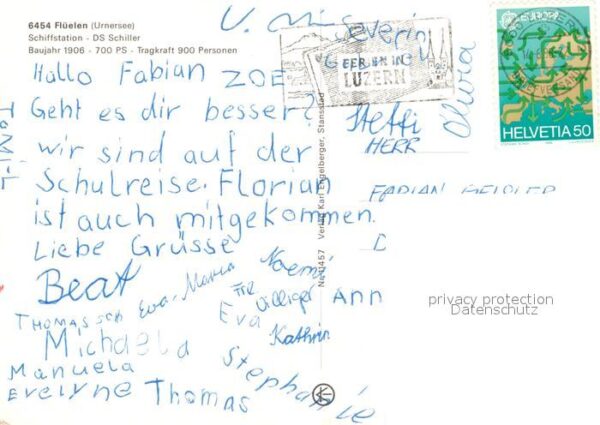 6454 Flüelen (Urnersee)
Schiffstation - DS Schiller
Baujahr 1906 - 700 PS - Tragkraft 900 Personen
Hallo Fabian
Geht es dir besser?
wir sind auf der
Schulreise. Florian
ist auch mitgekommen.
Liebe Grüsse
Beat
Eva-Maria
Noemi
Thomas Sch
Villiger
Eva
Kathrin
Ann
Michaela
Manuela
Stephanie
Evelyne
Thomas
ZOE
Severin
Steffi
Olivia
FERIEN IN
LUZERN
EUROPA
HELVETIA 50
HERR
FABIAN GEISLER
D
Verlag Karl Engelberger, Stansstad
privacy protection
Datenschutz